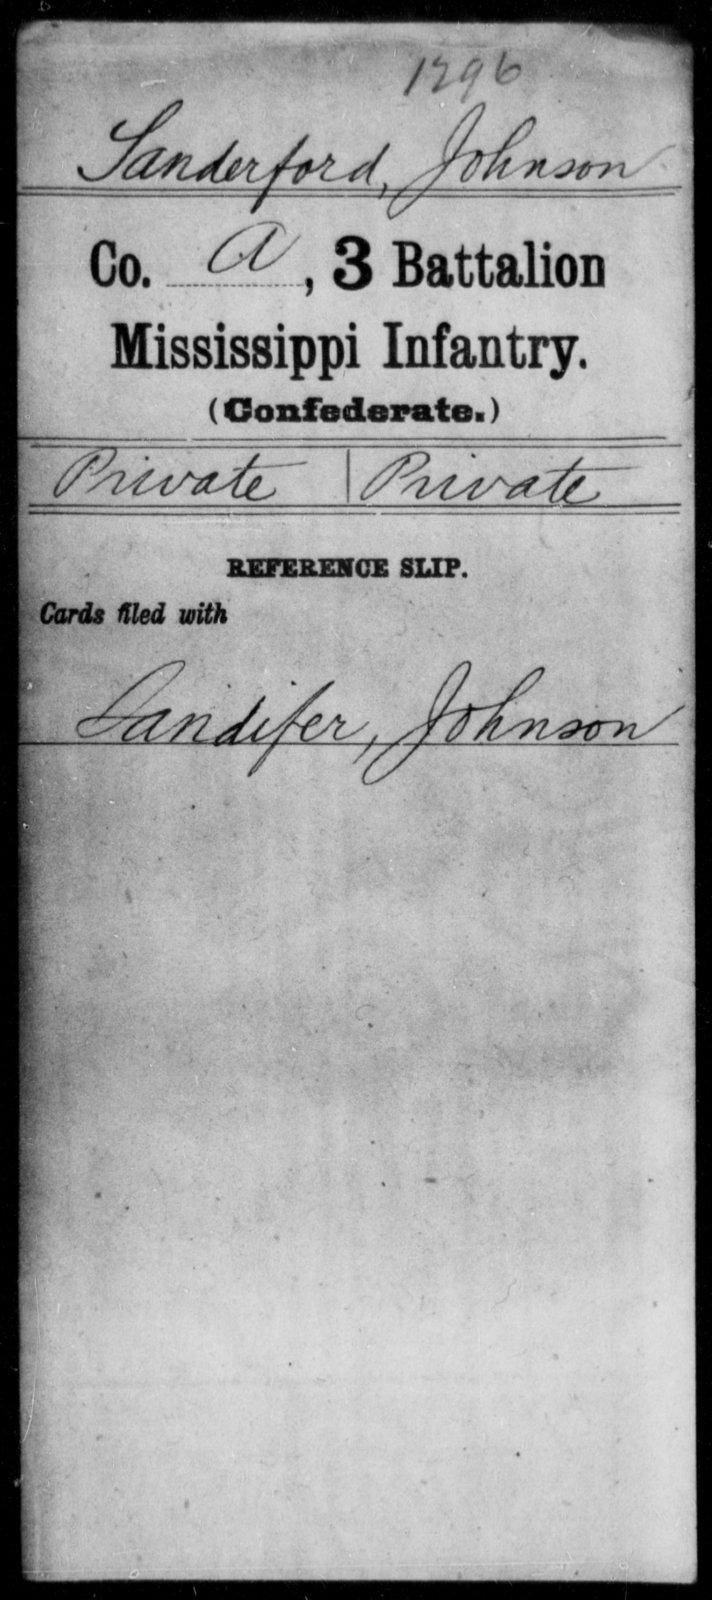 1296
Sanderford, Johnson
Co. A, 3 Battalion
Mississippi Infantry.
(Confederate.)
Private | Private
REFERENCE SLIP.
Cards filed with
Sandifer, Johnson